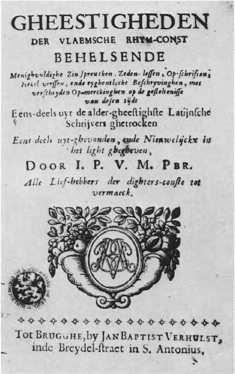 GHEESTIGHEDEN
DER VLAEMSCHE RHYM-CONST
BEHELSENDE
Menighvuldighe Zin-spreucken, Zeden-lessen, Op-schriften,
Hekel-verssen, ende eyghentlicke Beschryvinghen, met
verscheyden Op-merckinghen op de ghesteltenisse
van desen tijdt
Eens-deels uyt de alder-gheestighste Latijnsche
Schrijvers ghetrocken
Eens deels uyt-ghevonden, ende Nieuwelijckx in
het light ghegheven,
DOOR I. P. V. M. PBR.
Alle Lief-hebbers der dighters-conste tot
vermaeck.
TOT BRUGGHE, by JAN BAPTIST VERHULST,
inde Breydel-straet in S. Antonius,